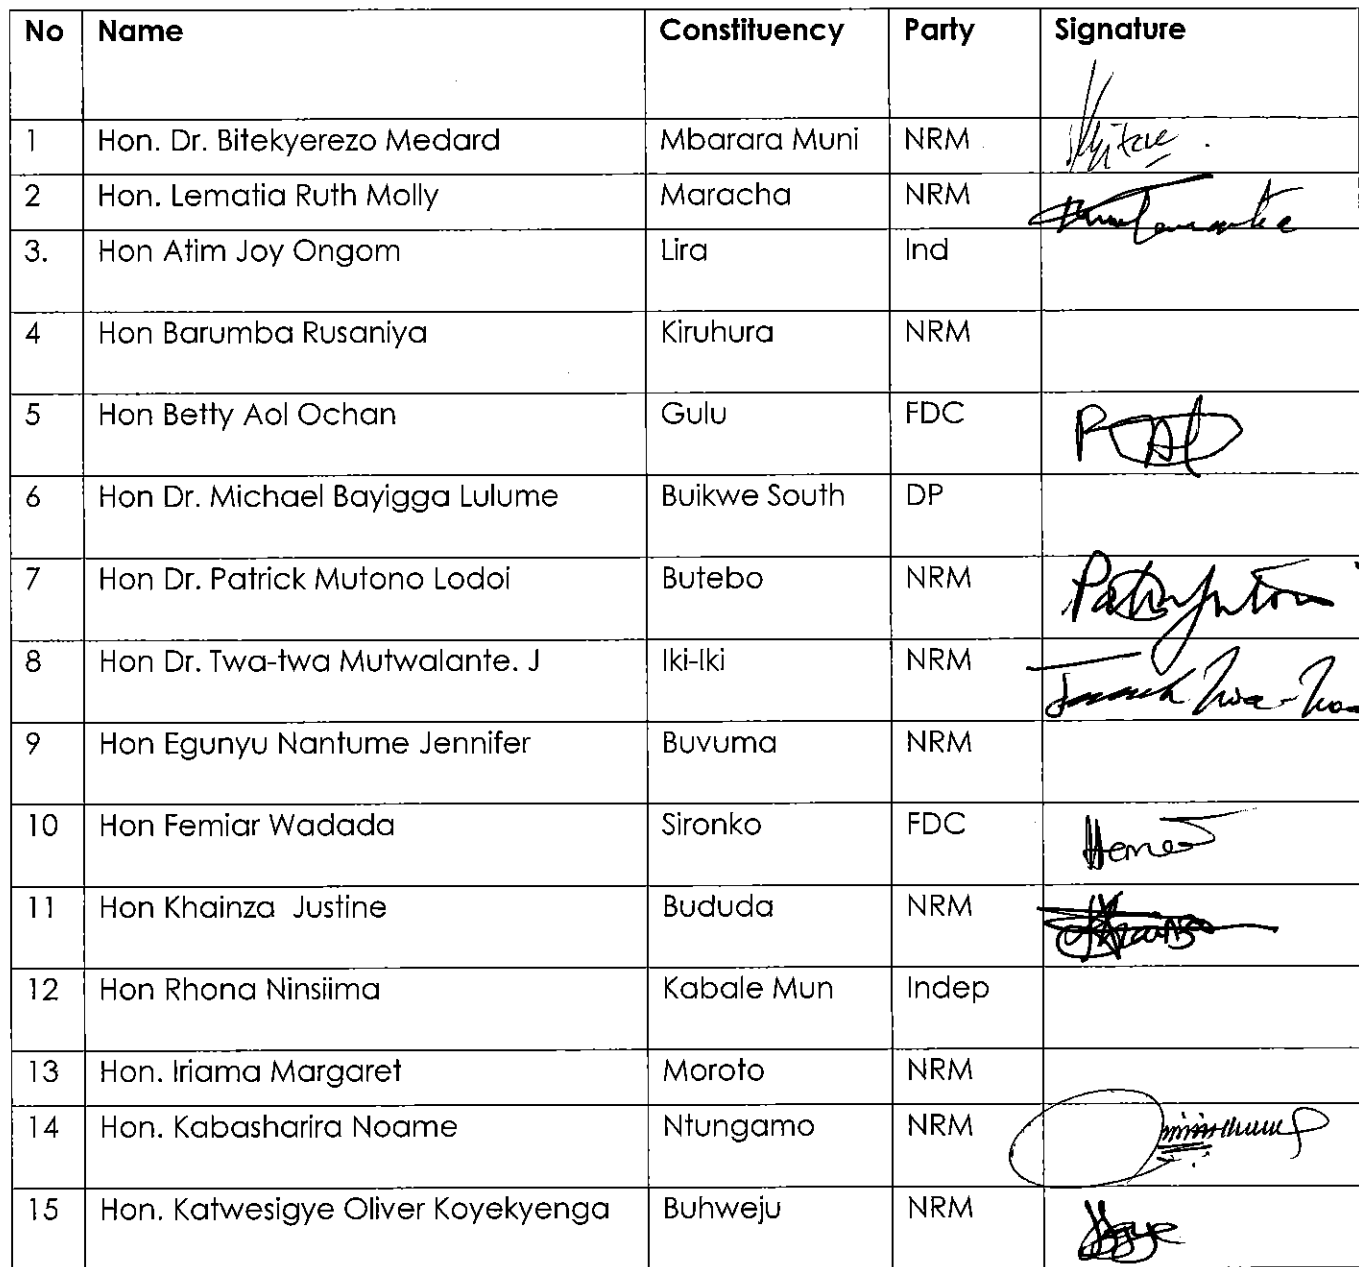 No Name Constituency Party Signature
1 Hon. Dr. Bitekyerezo Medard Mbarara Muni NRM
2 Hon. Lematia Ruth Molly Maracha NRM
3. Hon Atim Joy Ongom Lira Ind
4 Hon Barumba Rusaniya Kiruhura NRM
5 Hon Betty Aol Ochan Gulu FDC
6 Hon Dr. Michael Bayigga Lulume Buikwe South DP
7 Hon Dr. Patrick Mutono Lodoi Butebo NRM
8 Hon Dr. Twa-twa Mutwalante. J Iki-Iki NRM
9 Hon Egunyu Nantume Jennifer Buvuma NRM
10 Hon Femiar Wadada Sironko FDC
11 Hon Khainza Justine Bududa NRM
12 Hon Rhona Ninsiima Kabale Mun Indep
13 Hon. Iriama Margaret Moroto NRM
14 Hon. Kabasharira Noame Ntungamo NRM
15 Hon. Katwesigye Oliver Koyekyenga Buhweju NRM